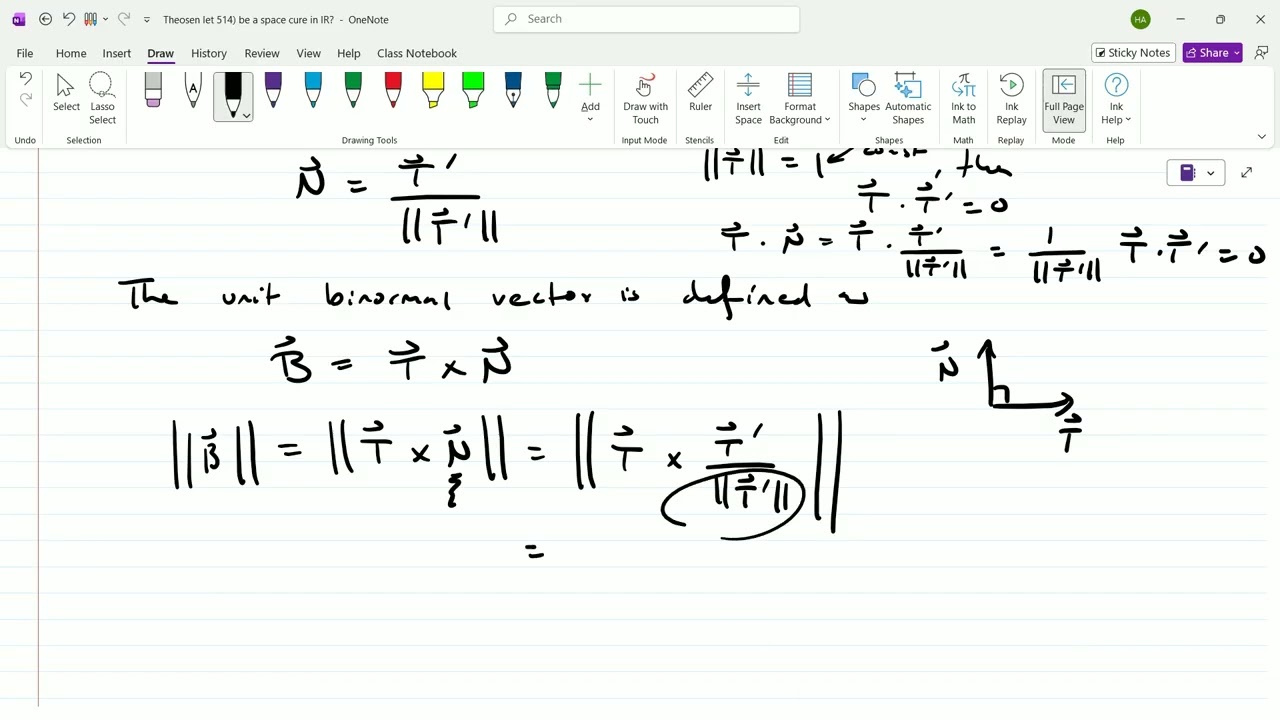 Theosen let 514) be a space cure in IR? - OneNote
Search
HA
File Home Insert Draw History Review View Help Class Notebook
Sticky Notes
Share
Undo
Select
Lasso Select
A
Add
Draw with Touch
Ruler
Insert Space
Format Background
Shapes
Automatic Shapes
Ink to Math
Ink Replay
Full Page View
Ink Help
Undo Selection Drawing Tools Input Mode Stencils Edit Shapes Math Replay Mode Help
||T⃗|| = 1 const, then
N⃗ = T⃗' / ||T⃗'||
T⃗ · T⃗' = 0
T⃗ · N⃗ = T⃗ · T⃗' / ||T⃗'|| = 1 / ||T⃗'|| T⃗ · T⃗' = 0
The unit binormal vector is defined as
B⃗ = T⃗ × N⃗
N⃗
T⃗
||B⃗|| = ||T⃗ × N⃗|| = || T⃗ × T⃗' / ||T⃗'|| ||
=